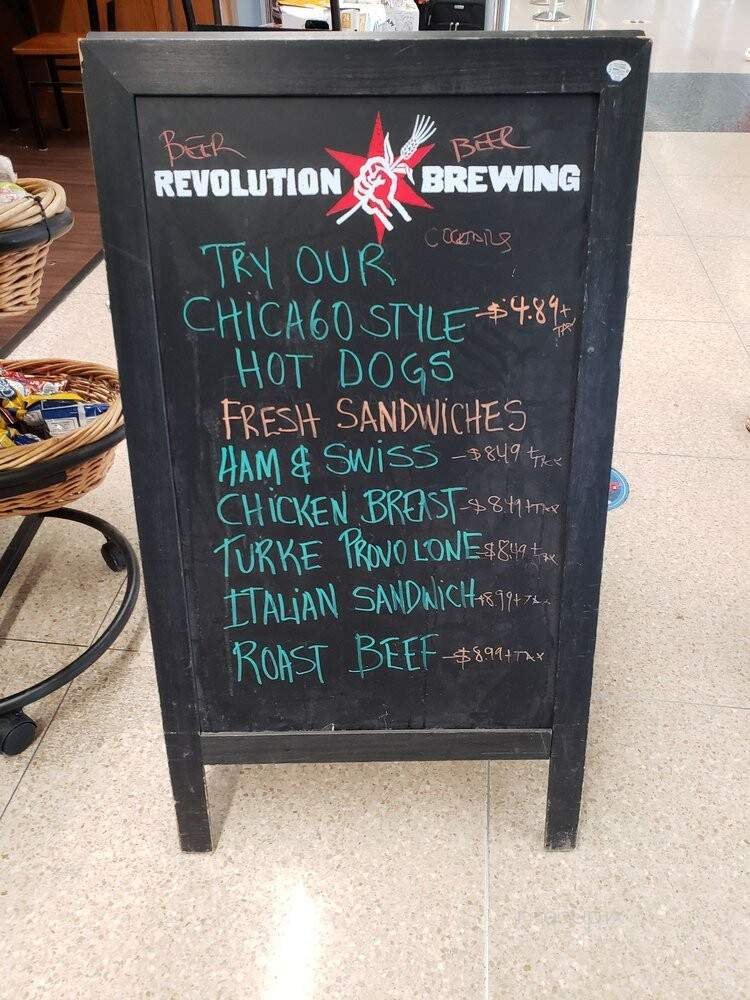 BEER BEER
REVOLUTION BREWING
COCKTAILS
TRY OUR
CHICAGO STYLE -$4.89+ TAX
HOT DOGS
FRESH SANDWICHES
HAM & SWISS -$8.49+ TAX
CHICKEN BREAST -$8.49+TAX
TURKE PROVOLONE -$8.49+ TAX
ITALIAN SANDWICH -$8.99+TAX
ROAST BEEF -$8.99+TAX